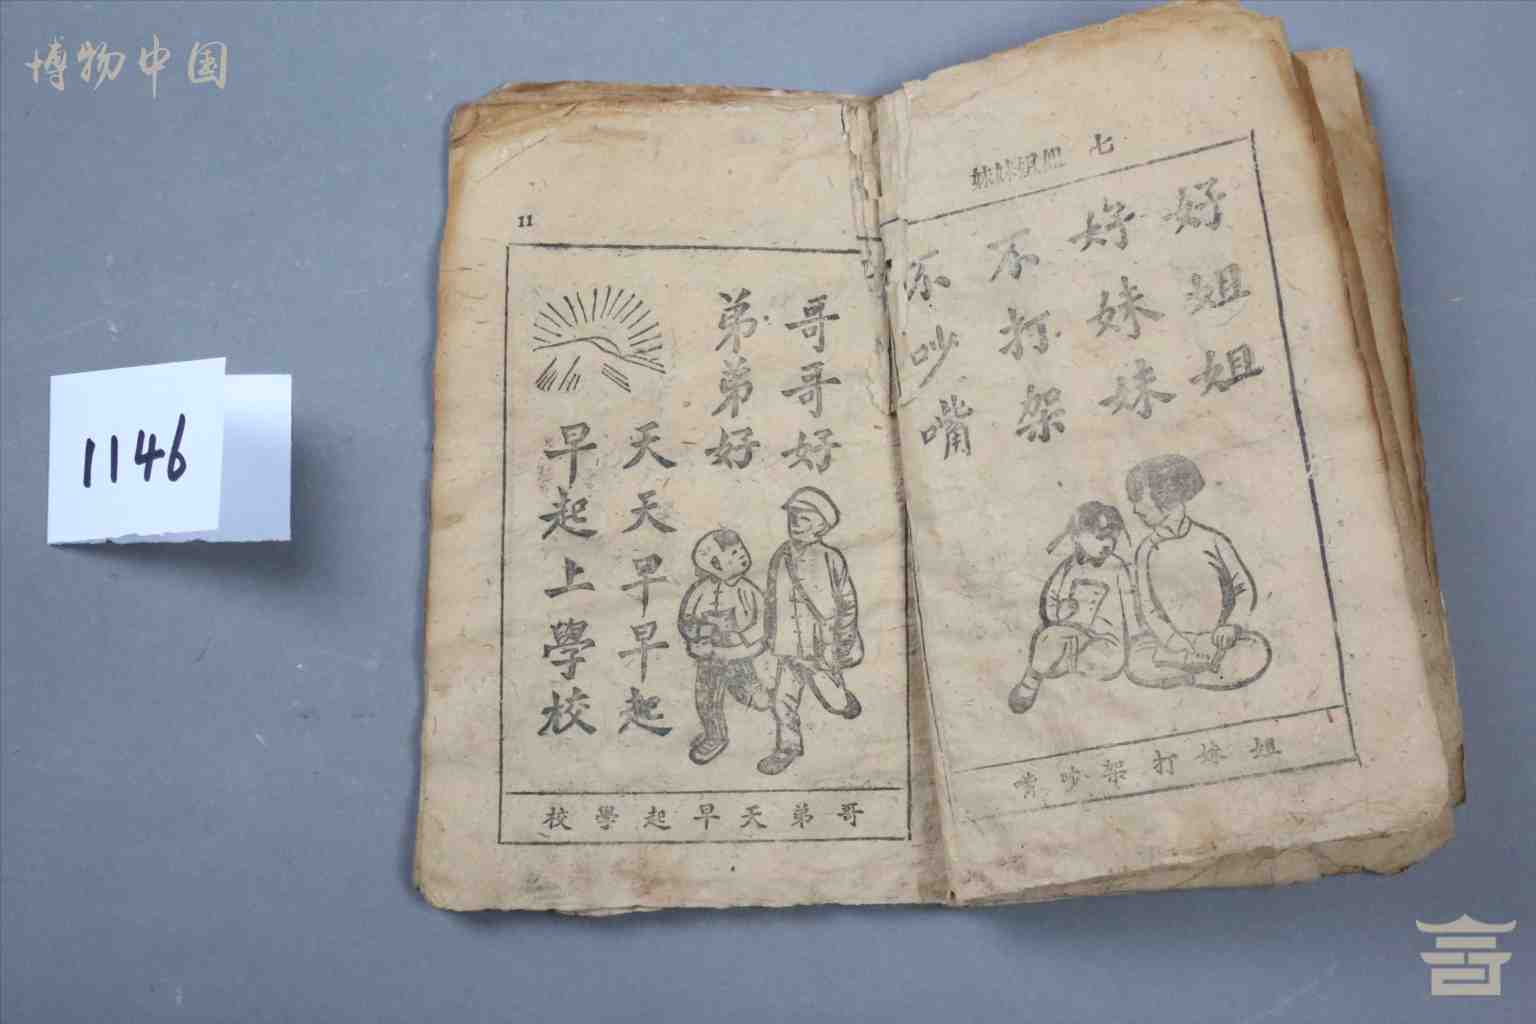 博物中国
1146
七 姐姐妹妹
好姐姐
好妹妹
不打架
不吵嘴
姐妹打架吵嘴
11
哥哥好
弟弟好
天天早早起
早起上學校
哥弟天早起學校